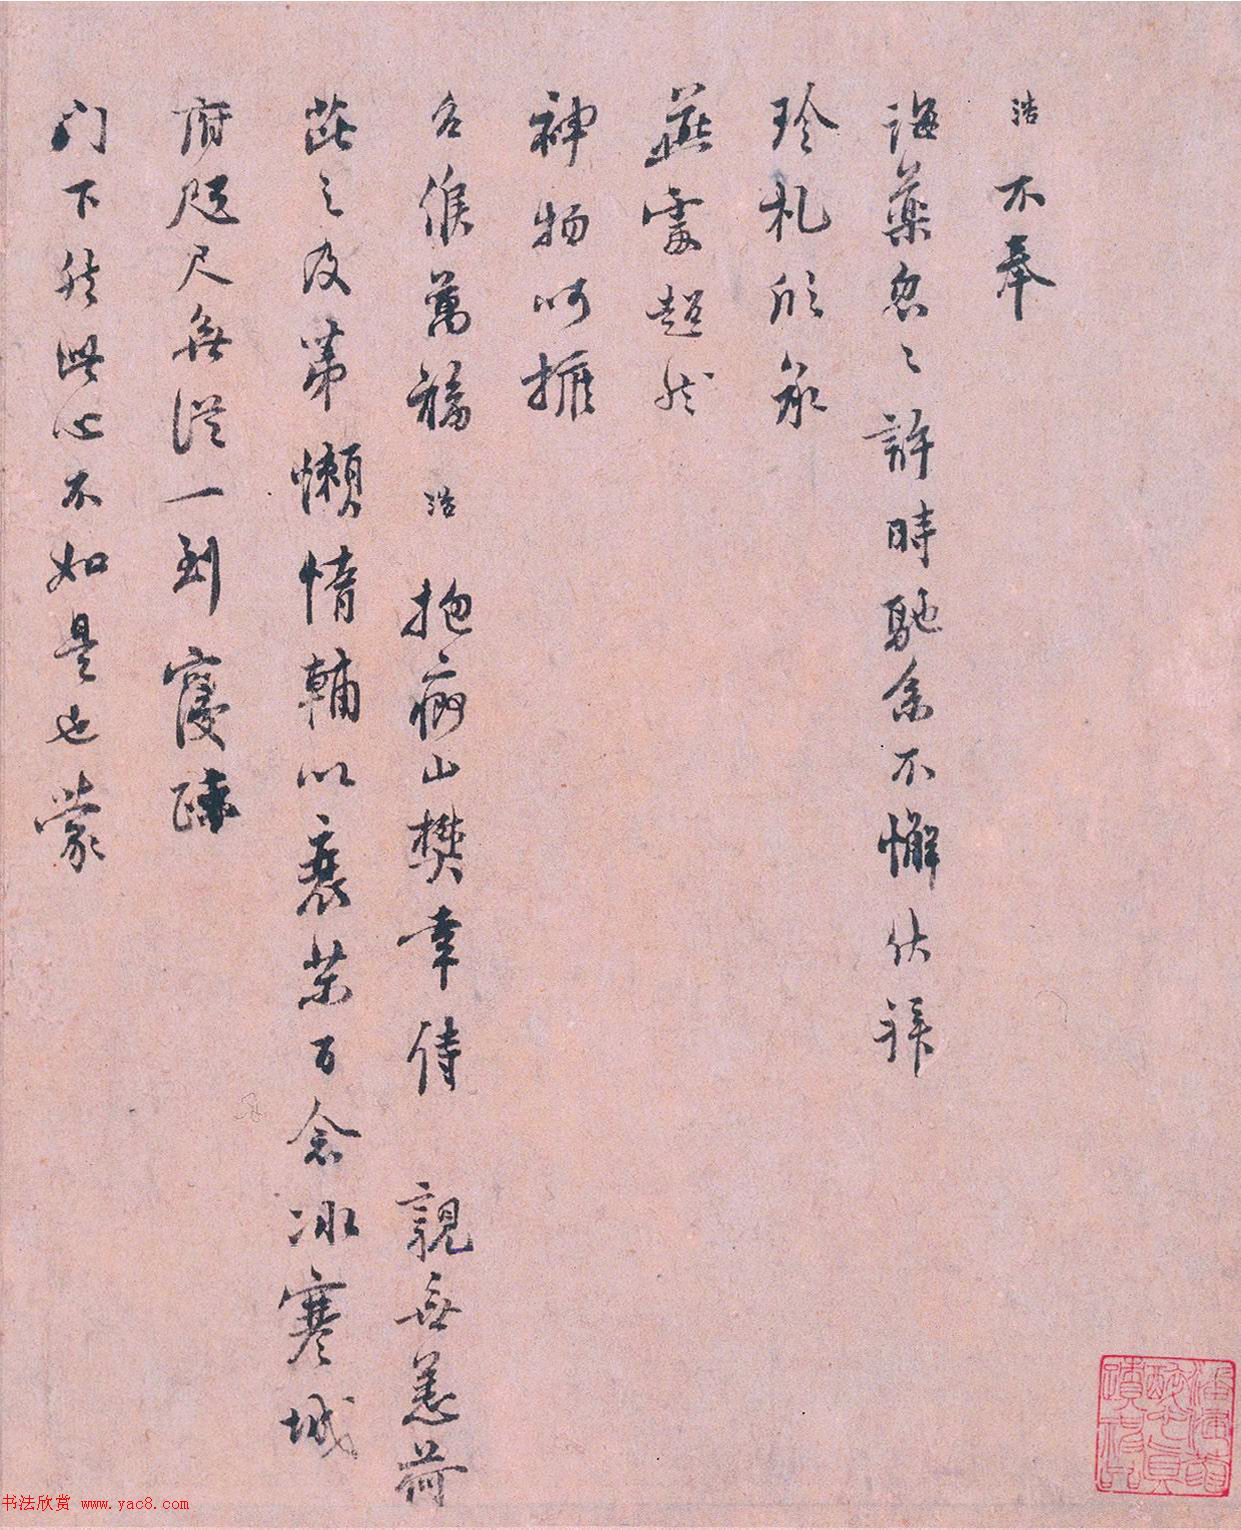 浩不奉
誨藥忽〻許時馳不懈伏拜
珍札欣承
燕處超然
神物呵擁
台候萬福浩抱病山樊幸侍親無恙荷
芘之及第懶惰輔以衰百念冰寒城
府咫尺無從一到寢疎
门下然此心不如是也蒙
书法欣赏 www.yac8.com